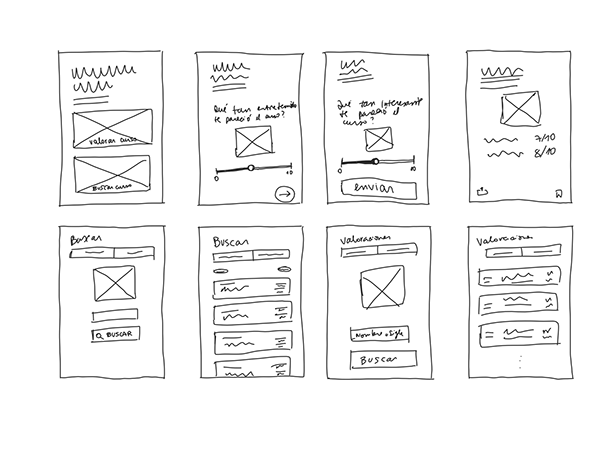 Valorar curso
Buscar curso
Qué tan entretenido
te pareció el curso?
0 10
Qué tan interesante
te pareció el
curso?
0 10
Enviar
7/10
8/10
Buscar
BUSCAR
Buscar
Valoraciones
Nombre o sigla
Buscar
Valoraciones